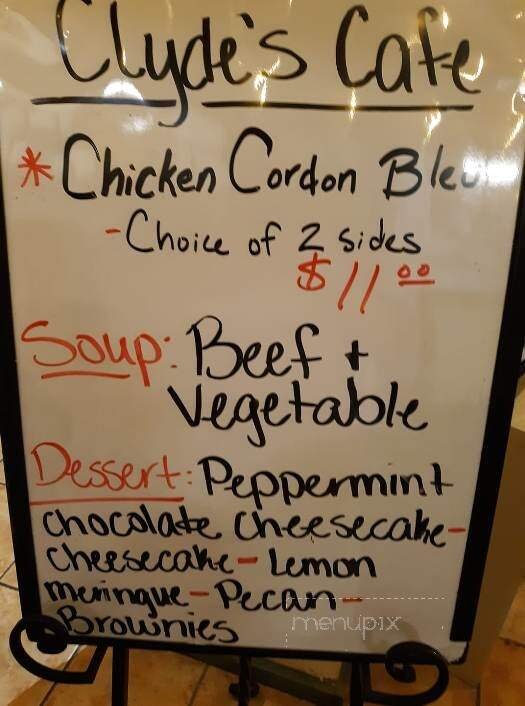 Clyde's Cafe
* Chicken Cordon Bleu
- Choice of 2 sides
$11.00
Soup: Beef +
Vegetable
Dessert: Peppermint
chocolate cheesecake -
cheesecake - Lemon
meringue - Pecan -
Brownies
menupix